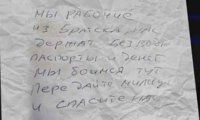 МЫ РАБОЧИЕ
ИЗ БРАТСКА НАС
ДЕРЖАТ БЕЗ
ПАСПОРТЫ И ДЕНЕГ
МЫ БОИМСЯ ТУТ
ПЕРЕДАЙТЕ МИЛИЦИ
И СПАСИТЕ НАС